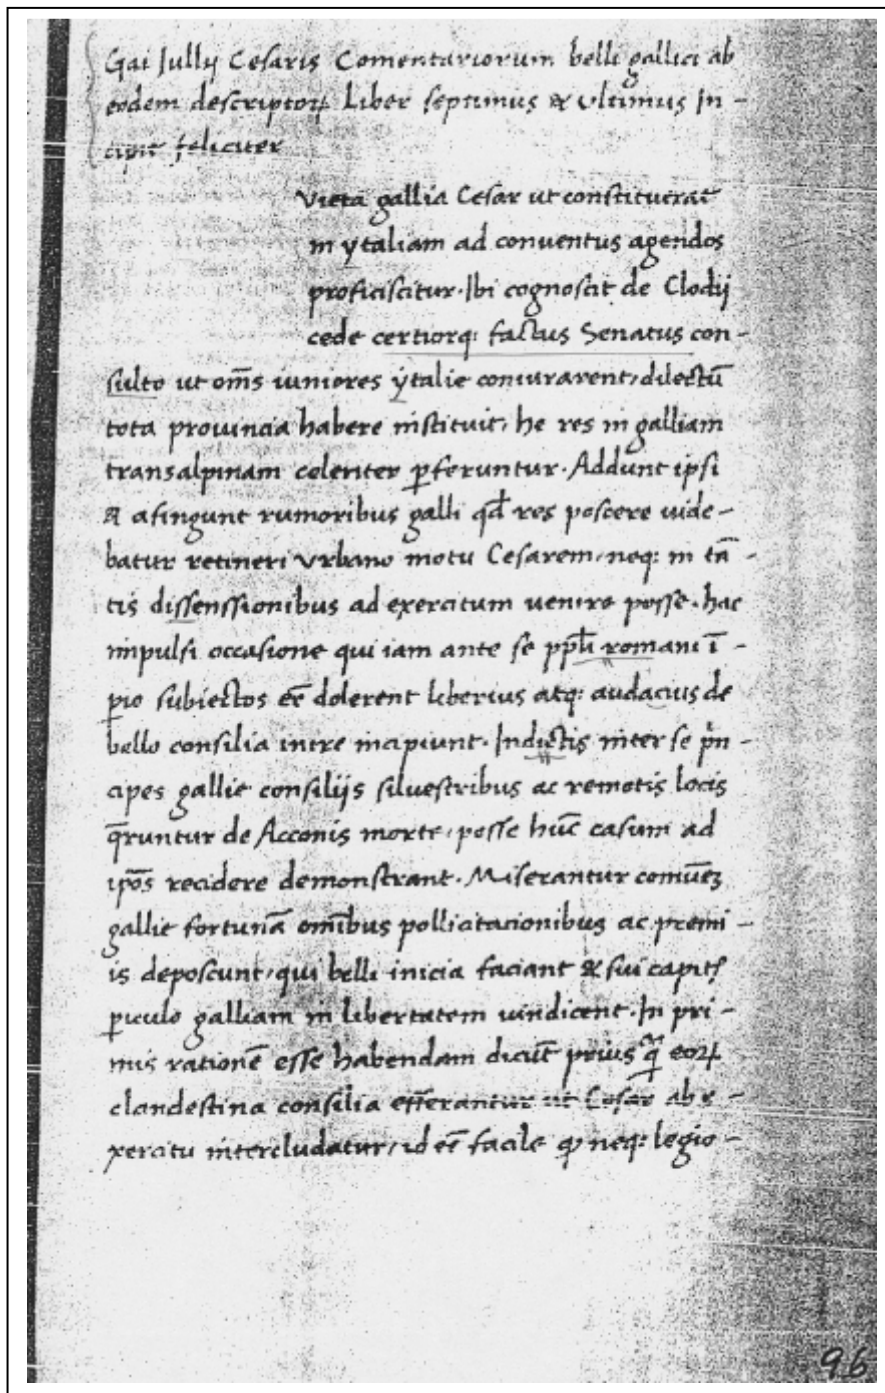 Gai Jullij Cesaris Comentariorum belli gallici ab
eodem descriptoꝝ Liber septimus & vltimus In-
cipit feliciter
vieta gallia Cesar ut constituerat
in ytaliam ad conventus agendos
proficiscitur. Ibi cognoscit de Clodij
cede certiorq: factus Senatus con-
sulto ut om̄s iuniores ytalie coniurarent, dilectū
tota prouincia habere instituit, he res in galliam
transalpinam celeriter ꝑferuntur. Addunt ipsi
& afingunt rumoribus galli qd̄ res poscere uide-
batur retineri vrbano motu Cesarem, neq: in tā-
tis dissenssionibus ad exercitum uenire posse. hac
impulsi occasione qui iam ante se ppl̄i romani ī-
ꝑio subiectos eē dolerent liberius atq: audacius de
bello consilia inire incipiunt. Indictis inter se p̄n-
cipes gallie consilijs siluestribus ac remotis locis
q̄runtur de Acconis morte, posse hūc casum ad
ip̄os recidere demonstrant. Miserantur comūeꝫ
gallie fortunā om̄ibus pollicitacionibus ac premi-
is deposcunt, qui belli inicia faciant & sui capitꝭ
ꝑiculo galliam in libertatem uindicent. In pri-
mis rationē esse habendam dicūt prius q̄ eoꝝ
clandestina consilia efferantur ut Cesar ab e-
xercitu intercludatur, id eē facile ꝙ neq: legio-
96